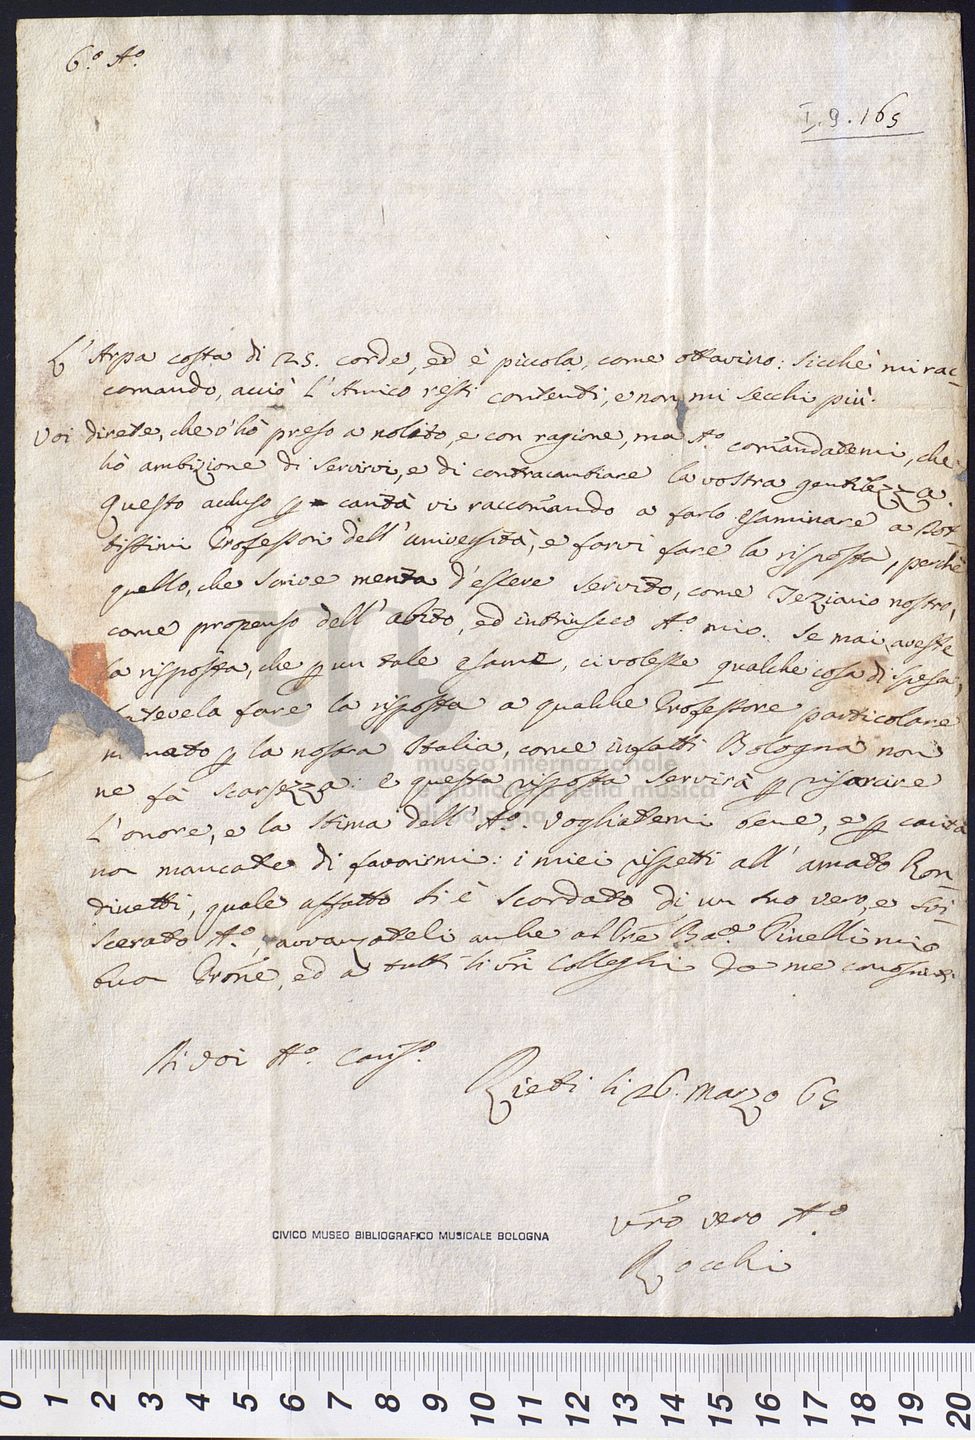 6.º A.º
I.9.165
L'Arpa costa di 25. corde, ed è piccola, come ottavino: sicchè mi rac-
comando, acciò l'Amico resti contenti, e non mi secchi più.
Voi direte, che v'hò preso a nolito, e con ragione, ma A.º comandatemi, che
hò ambizione di servirvi, e di contracambiare la vostra gentilezza.
Questo accluso p carità vi raccomando a farlo esaminare a Dot-
tissimi Professori dell'università, e farvi fare la risposta, perchè
quello, che scrive merita d'essere servito, come Teziario nostro,
come propenso dell'abito, ed intrinseco A.º mio. Se mai aveste
la risposta, che p un tale esame, ci volesse qualche cosa di spesa,
fatevela fare la risposta a qualche Professore particolare
nomato p la nostra Italia, come infatti Bologna non
ne fà scarsezza: e questa risposta servirà p risarcire
l'onore, e la stima dell'A.º Vogliatemi bene, e p carità
non mancate di favorirmi: i miei rispetti all'amato Ron-
dinetti, quale affatto si è scordato di un suo vero, e svi
scerato A.º, avvanzateli anche al Pre Bac.e Pinelli mio
buon Prõne, ed a tutti li vri Colleghi da me conosciuti.
Di voi A.º Cariss.º
Rieti li 26. Marzo 65
Vro vero A.º
Rocchi
CIVICO MUSEO BIBLIOGRAFICO MUSICALE BOLOGNA
museo internazionale
e biblioteca della musica
di bologna
0 1 2 3 4 5 6 7 8 9 10 11 12 13 14 15 16 17 18 19 20